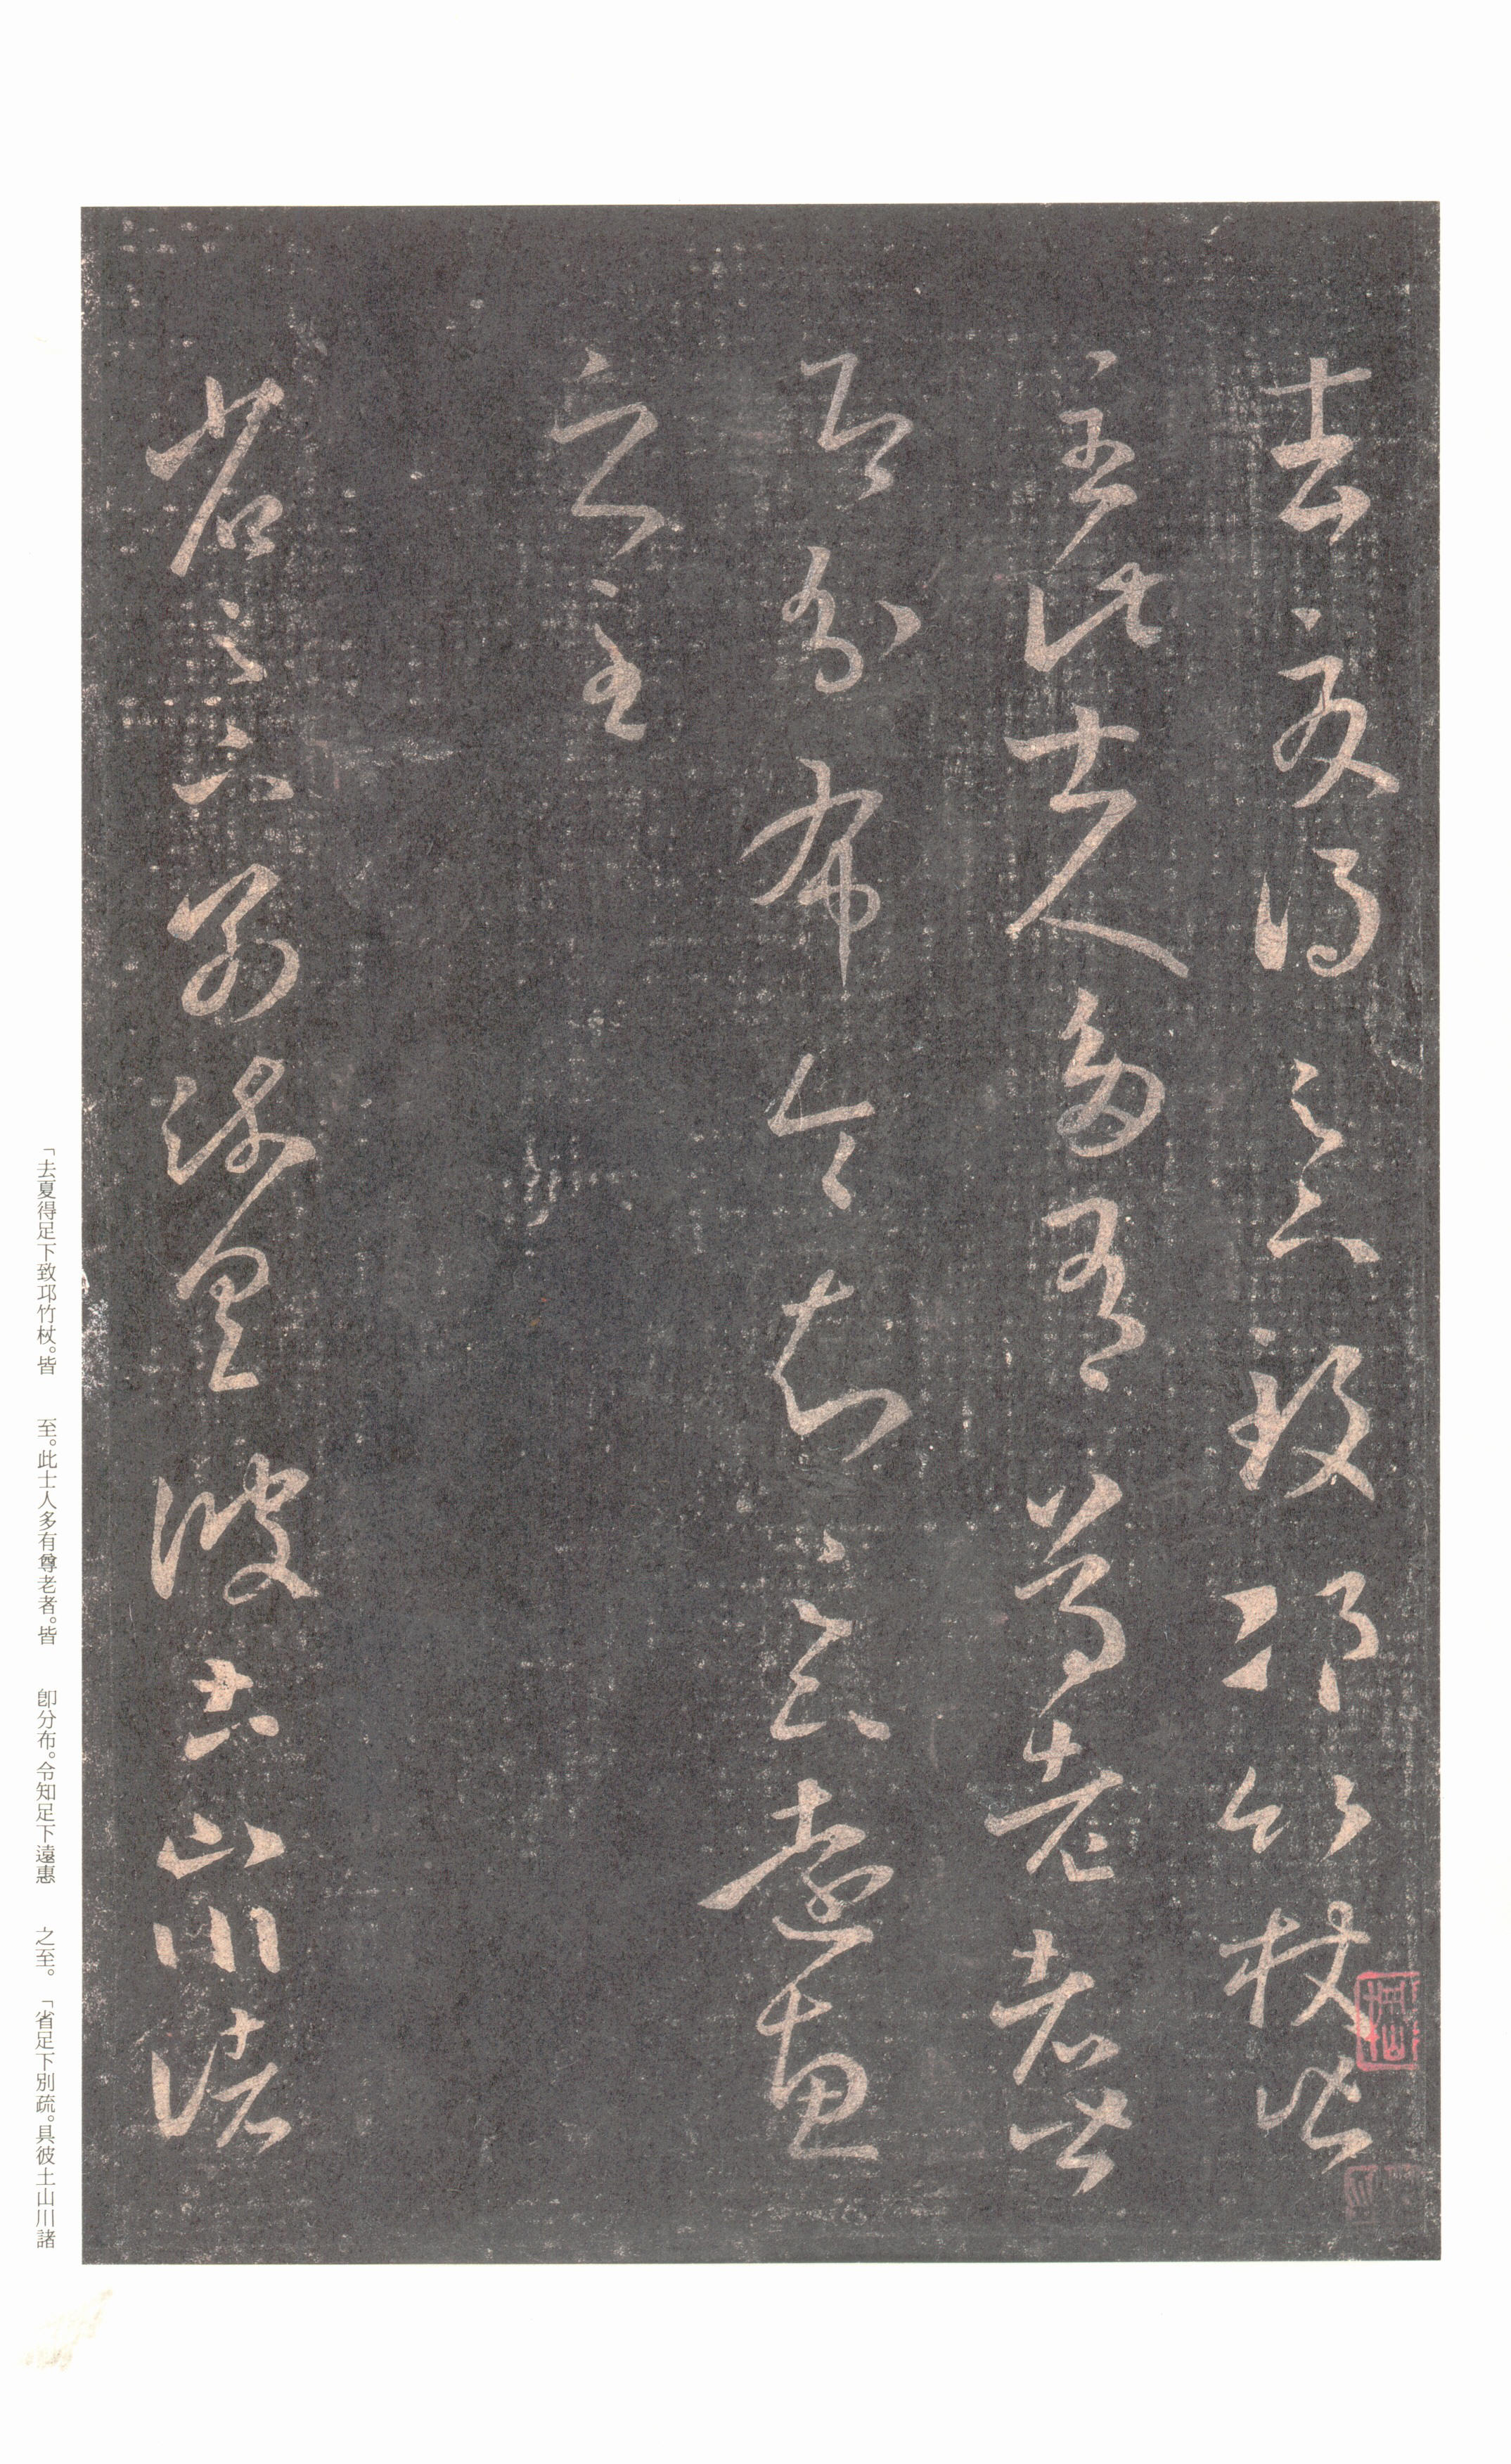 去夏得足下致邛竹杖皆
至此士人多有尊老者皆
即分布令知足下遠惠
之至
省足下別疏具彼土山川諸
「去夏得足下致邛竹杖。皆　至。此士人多有尊老者。皆　卽分布。令知足下遠惠　之至。「省足下別疏。具彼土山川諸